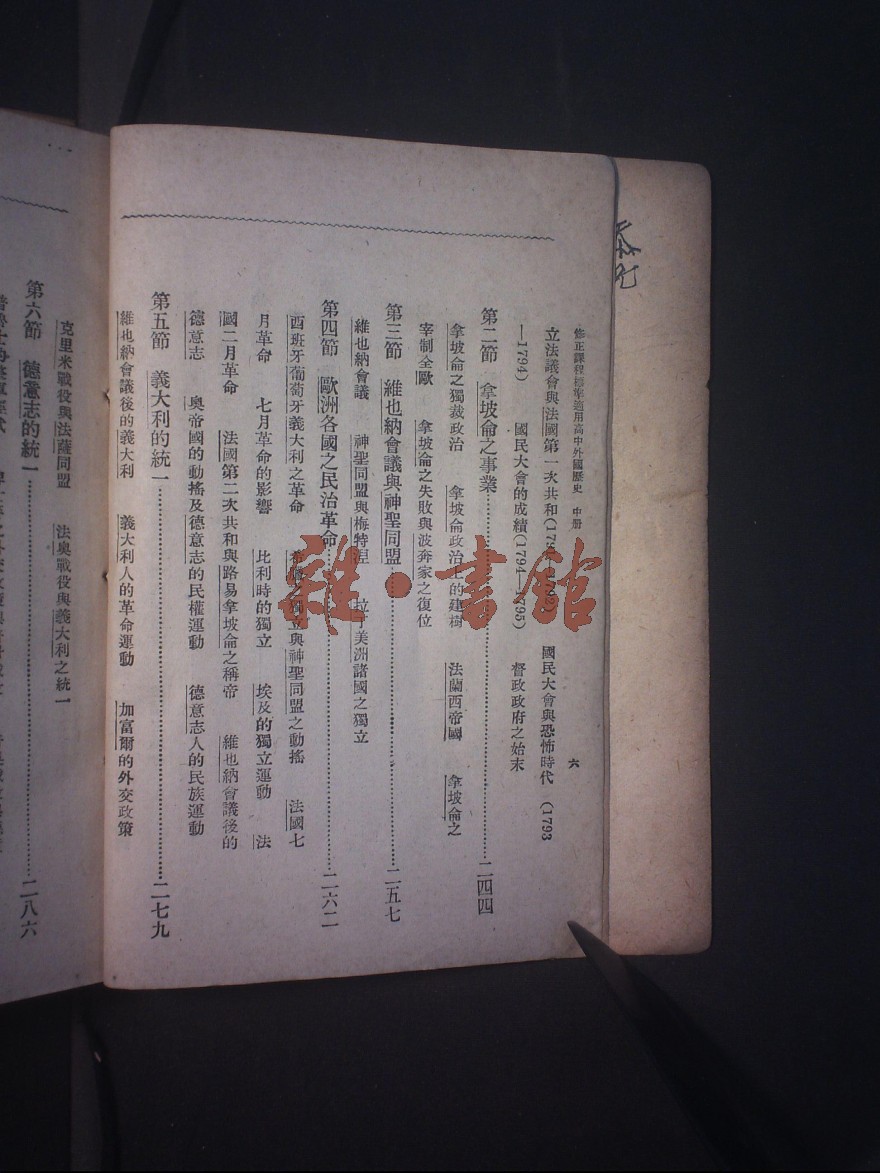 修正課程標準適用高中外國歷史 中册
六
立法議會與法國第一次共和(1791—1792) 國民大會與恐怖時代 (1793
—1794) 國民大會的成績(1794—1795) 督政政府之始末
第二節 拿坡侖之事業 二四四
拿坡侖之獨裁政治 拿坡侖政治上的建樹 法蘭西帝國 拿坡侖之
宰制全歐 拿坡侖之失敗與波奔家之復位
第三節 維也納會議與神聖同盟 二五七
維也納會議 神聖同盟與梅特涅 拉丁美洲諸國之獨立
第四節 歐洲各國之民治革命 二六二
西班牙葡萄牙義大利之革命 希臘之獨立與神聖同盟之動搖 法國七
月革命 七月革命的影響 比利時的獨立 埃及的獨立運動 法
國二月革命 法國第二次共和與路易拿坡侖之稱帝 維也納會議後的
德意志 奧帝國的動搖及德意志的民權運動 德意志人的民族運動
第五節 義大利的統一 二七九
維也納會議後的義大利 義大利人的革命運動 加富爾的外交政策
克里米戰役與法薩同盟 法奧戰役與義大利之統一
第六節 德意志的統一 二八六
雜·書館